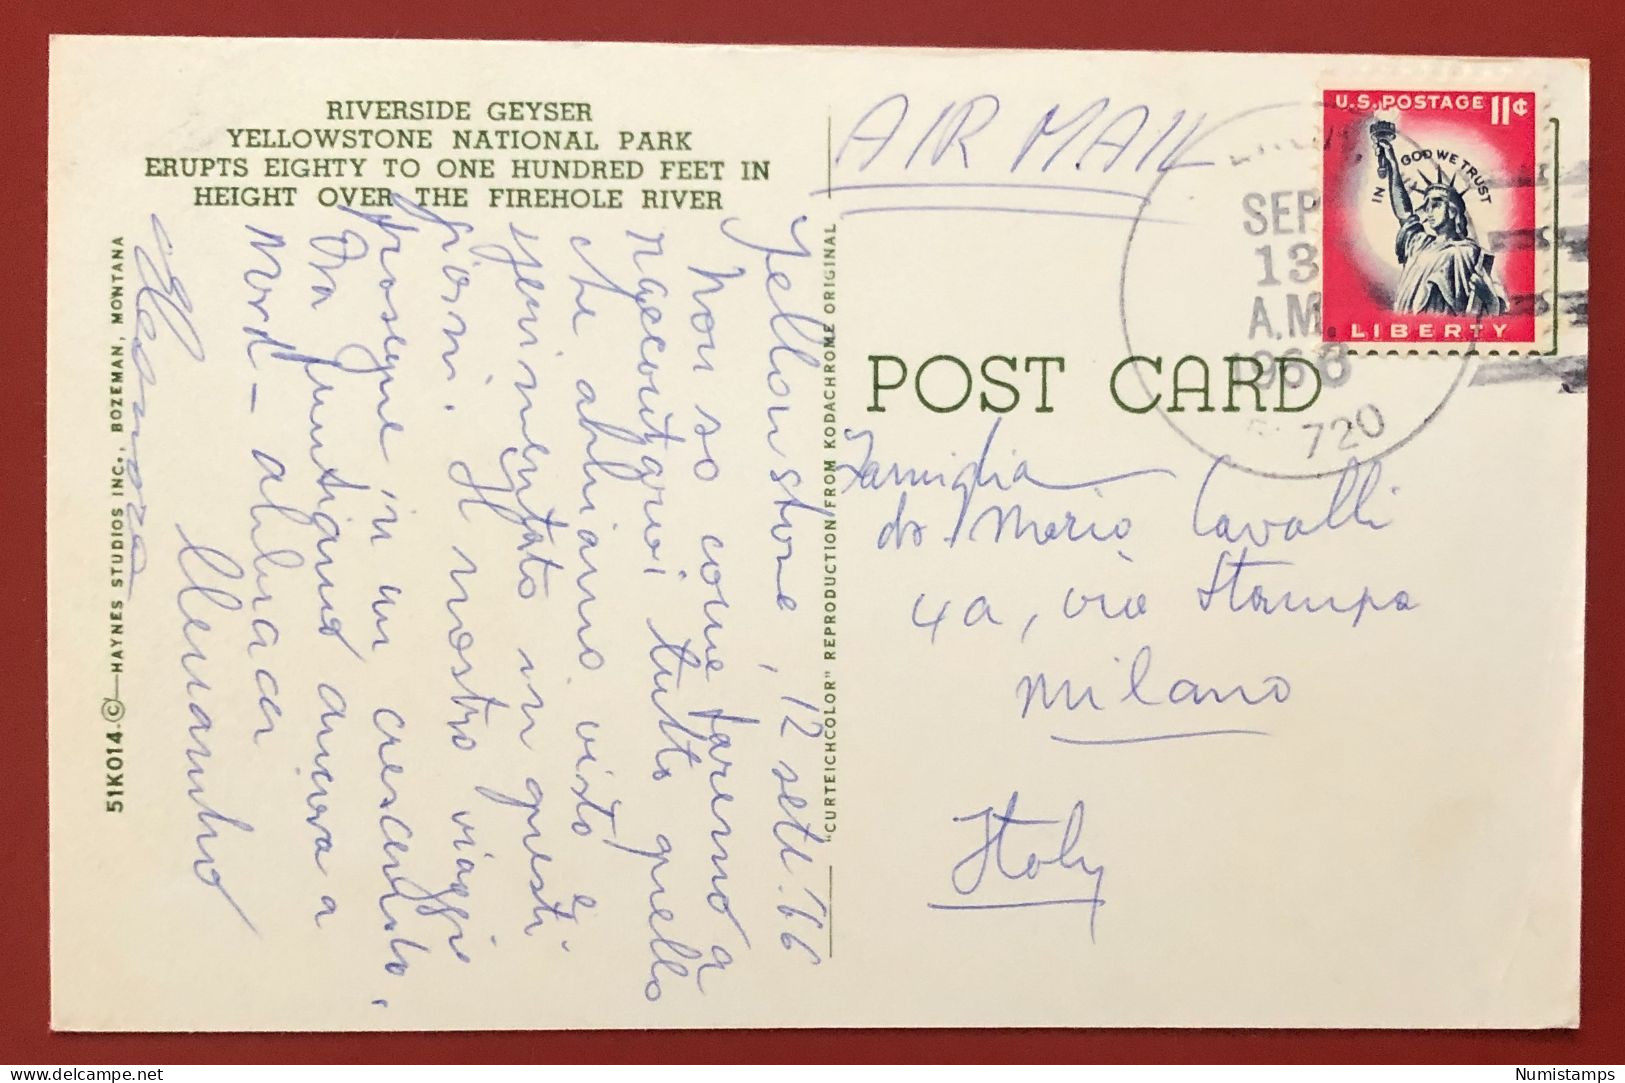 RIVERSIDE GEYSER
YELLOWSTONE NATIONAL PARK
ERUPTS EIGHTY TO ONE HUNDRED FEET IN
HEIGHT OVER THE FIREHOLE RIVER
51K014.©—HAYNES STUDIOS INC., BOZEMAN, MONTANA
Yellowstone, 12 sett. '66
Non so come faremo a
raccontarvi tutto quello
che abbiamo visto e
sperimentato in questi
giorni. Il nostro viaggio
prosegue in un crescendo.
Ora puntiamo ancora a
Nord - abbracci
Eleonora
"CURTEICHCOLOR" REPRODUCTION FROM KODACHROME ORIGINAL
AIR MAIL
POST CARD
U.S. POSTAGE 11¢
IN GOD WE TRUST
LIBERTY
SEP
13
A.M.
1966
720
Famiglia
Mario Cavalli
4a, via Stampa
Milano
Italy
Numistamps